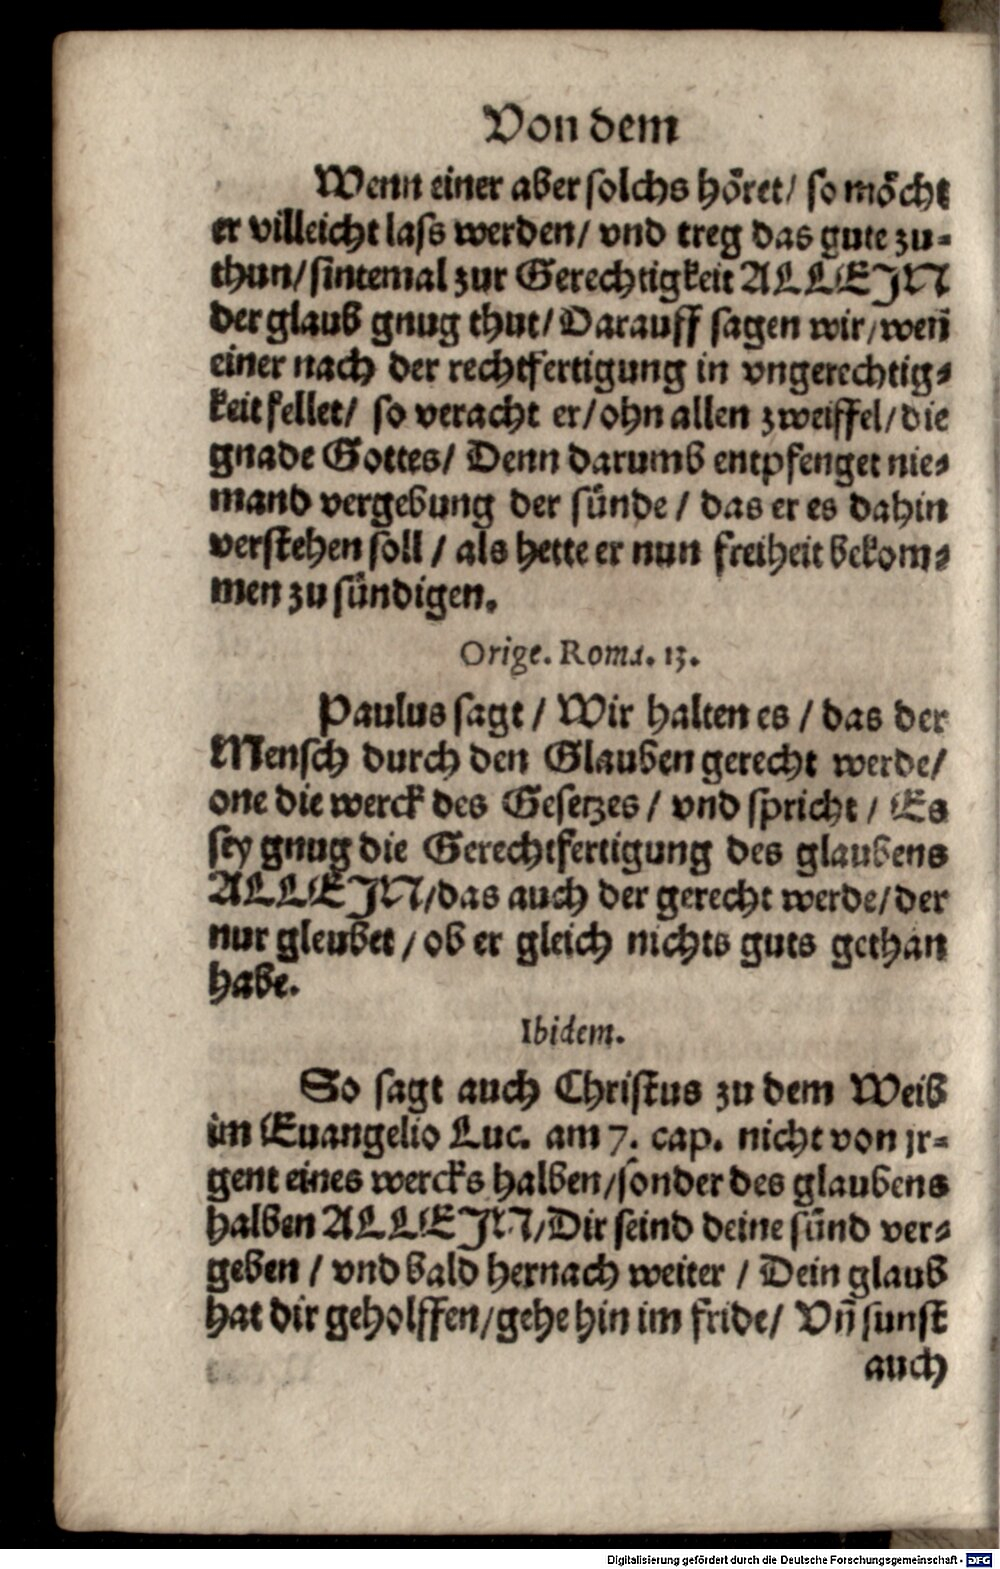 Von dem
Wenn einer aber solchs höret/ so möcht
er villeicht lass werden/ vnd treg das gute zu-
thun/ sintemal zur Gerechtigkeit ALLEIN
der glaub gnug thut/ Darauff sagen wir/ weñ
einer nach der rechtfertigung in vngerechtig-
keit fellet/ so veracht er/ ohn allen zweiffel/ die
gnade Gottes/ Denn darumb entpfenget nie-
mand vergebung der sünde / das er es dahin
verstehen soll / als hette er nun freiheit bekom-
men zu sündigen.
Orige. Roma. 13.
Paulus sagt / Wir halten es / das der
Mensch durch den Glauben gerecht werde/
one die werck des Gesetzes / vnd spricht / Es
sey gnug die Gerechtfertigung des glaubens
ALLEIN/das auch der gerecht werde/ der
nur gleubet / ob er gleich nichts guts gethan
habe.
Ibidem.
So sagt auch Christus zu dem Weib
im Euangelio Luc. am 7. cap. nicht von jr-
gent eines wercks halben/sonder des glaubens
halben ALLEIN/Dir seind deine sünd ver-
geben / vnd bald hernach weiter / Dein glaub
hat dir geholffen/gehe hin im fride/ Vñ sunst
auch
Digitalisierung gefördert durch die Deutsche Forschungsgemeinschaft - DFG